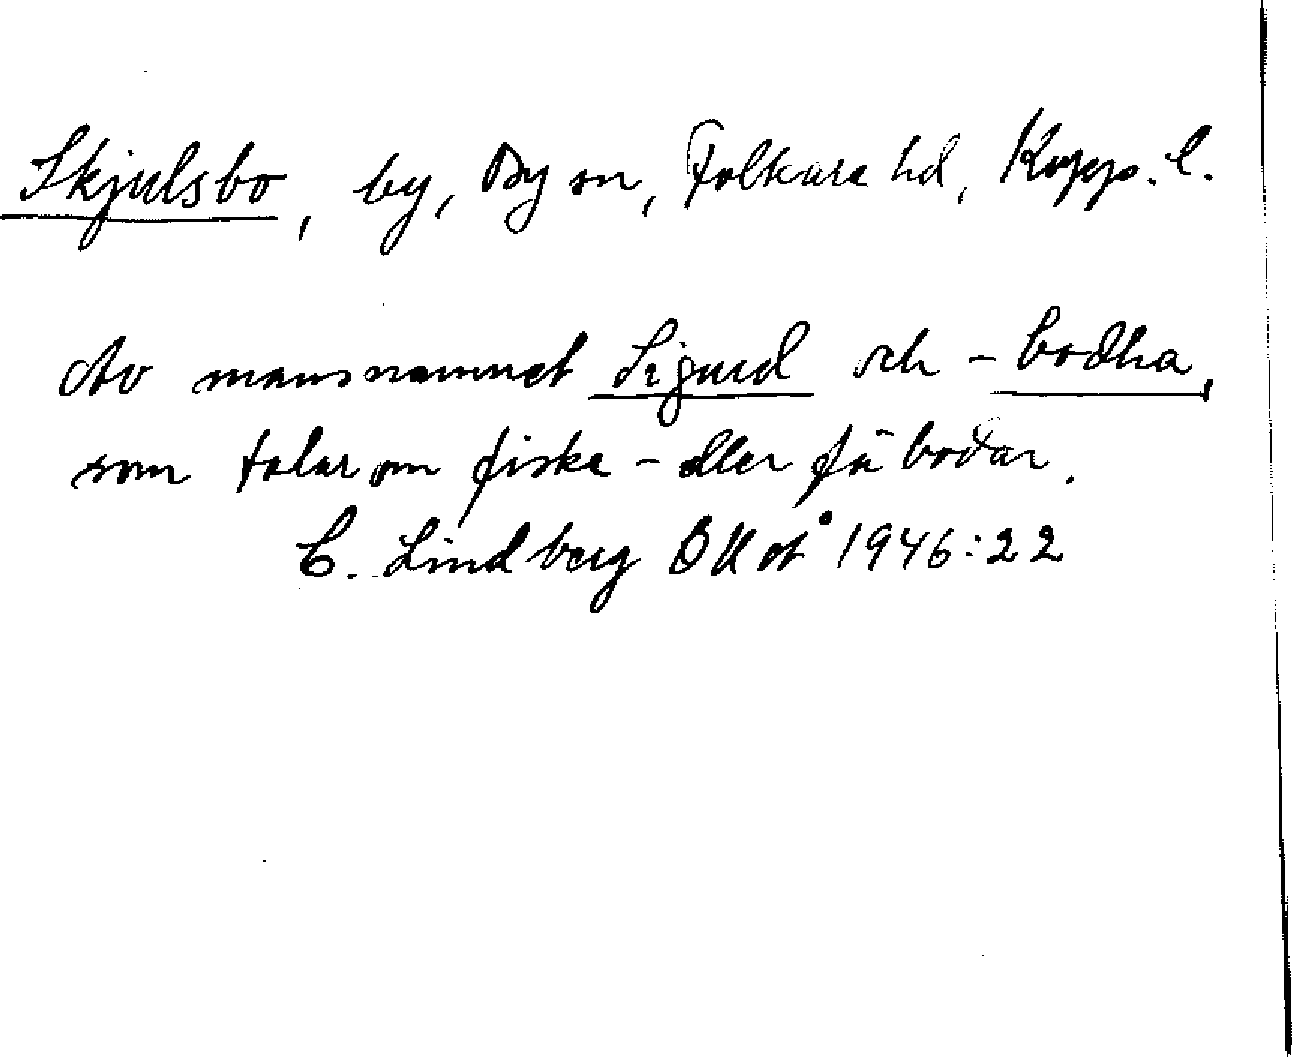 Skjulsbo, by, By sn, Folkare hd, Kopp. l.
Av mansnamnet Sigurd och -bodha,
som talar om fiske- eller fäbodar.
C. Lindberg 1946:22